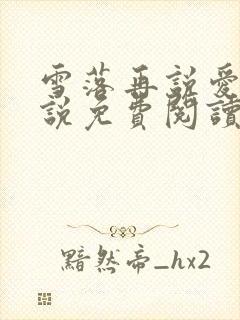 雪落再說愛
說免費閱讀
黯然帝_hx2